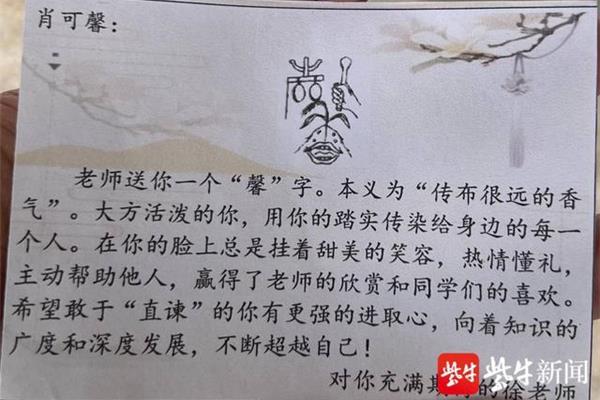 肖可馨：
老师送你一个“馨”字。本义为“传布很远的香
气”。大方活泼的你，用你的踏实传染给身边的每一
个人。在你的脸上总是挂着甜美的笑容，热情懂礼，
主动帮助他人，赢得了老师的欣赏和同学们的喜欢。
希望敢于“直谏”的你有更强的进取心，向着知识的
广度和深度发展，不断超越自己！
对你充满期待的徐老师
紫牛 紫牛新闻